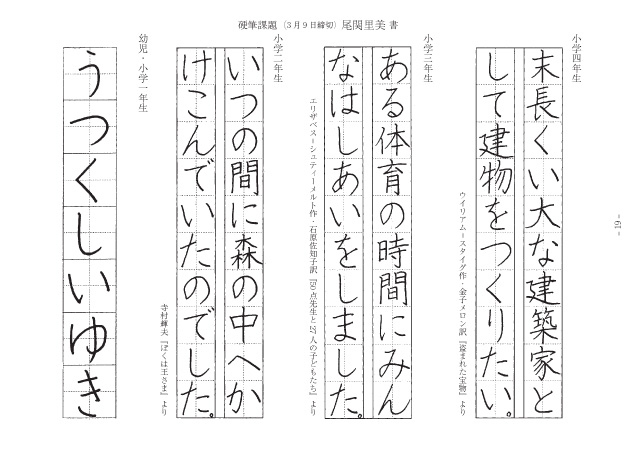 硬筆課題（3月9日締切）尾関里美 書
小学四年生
末長くい大な建築家と
して建物をつくりたい。
ウイリアム＝スタイグ作・金子メロン訳『盗まれた宝物』より
小学三年生
ある体育の時間にみん
なはしあいをしました。
エリザベス＝シュティーメルト作・石原佐知子訳『50点先生と27人の子どもたち』より
小学二年生
いつの間に森の中へか
けこんでいたのでした。
寺村輝夫『ぼくは王さま』より
幼児・小学一年生
うつくしいゆき
- 19 -